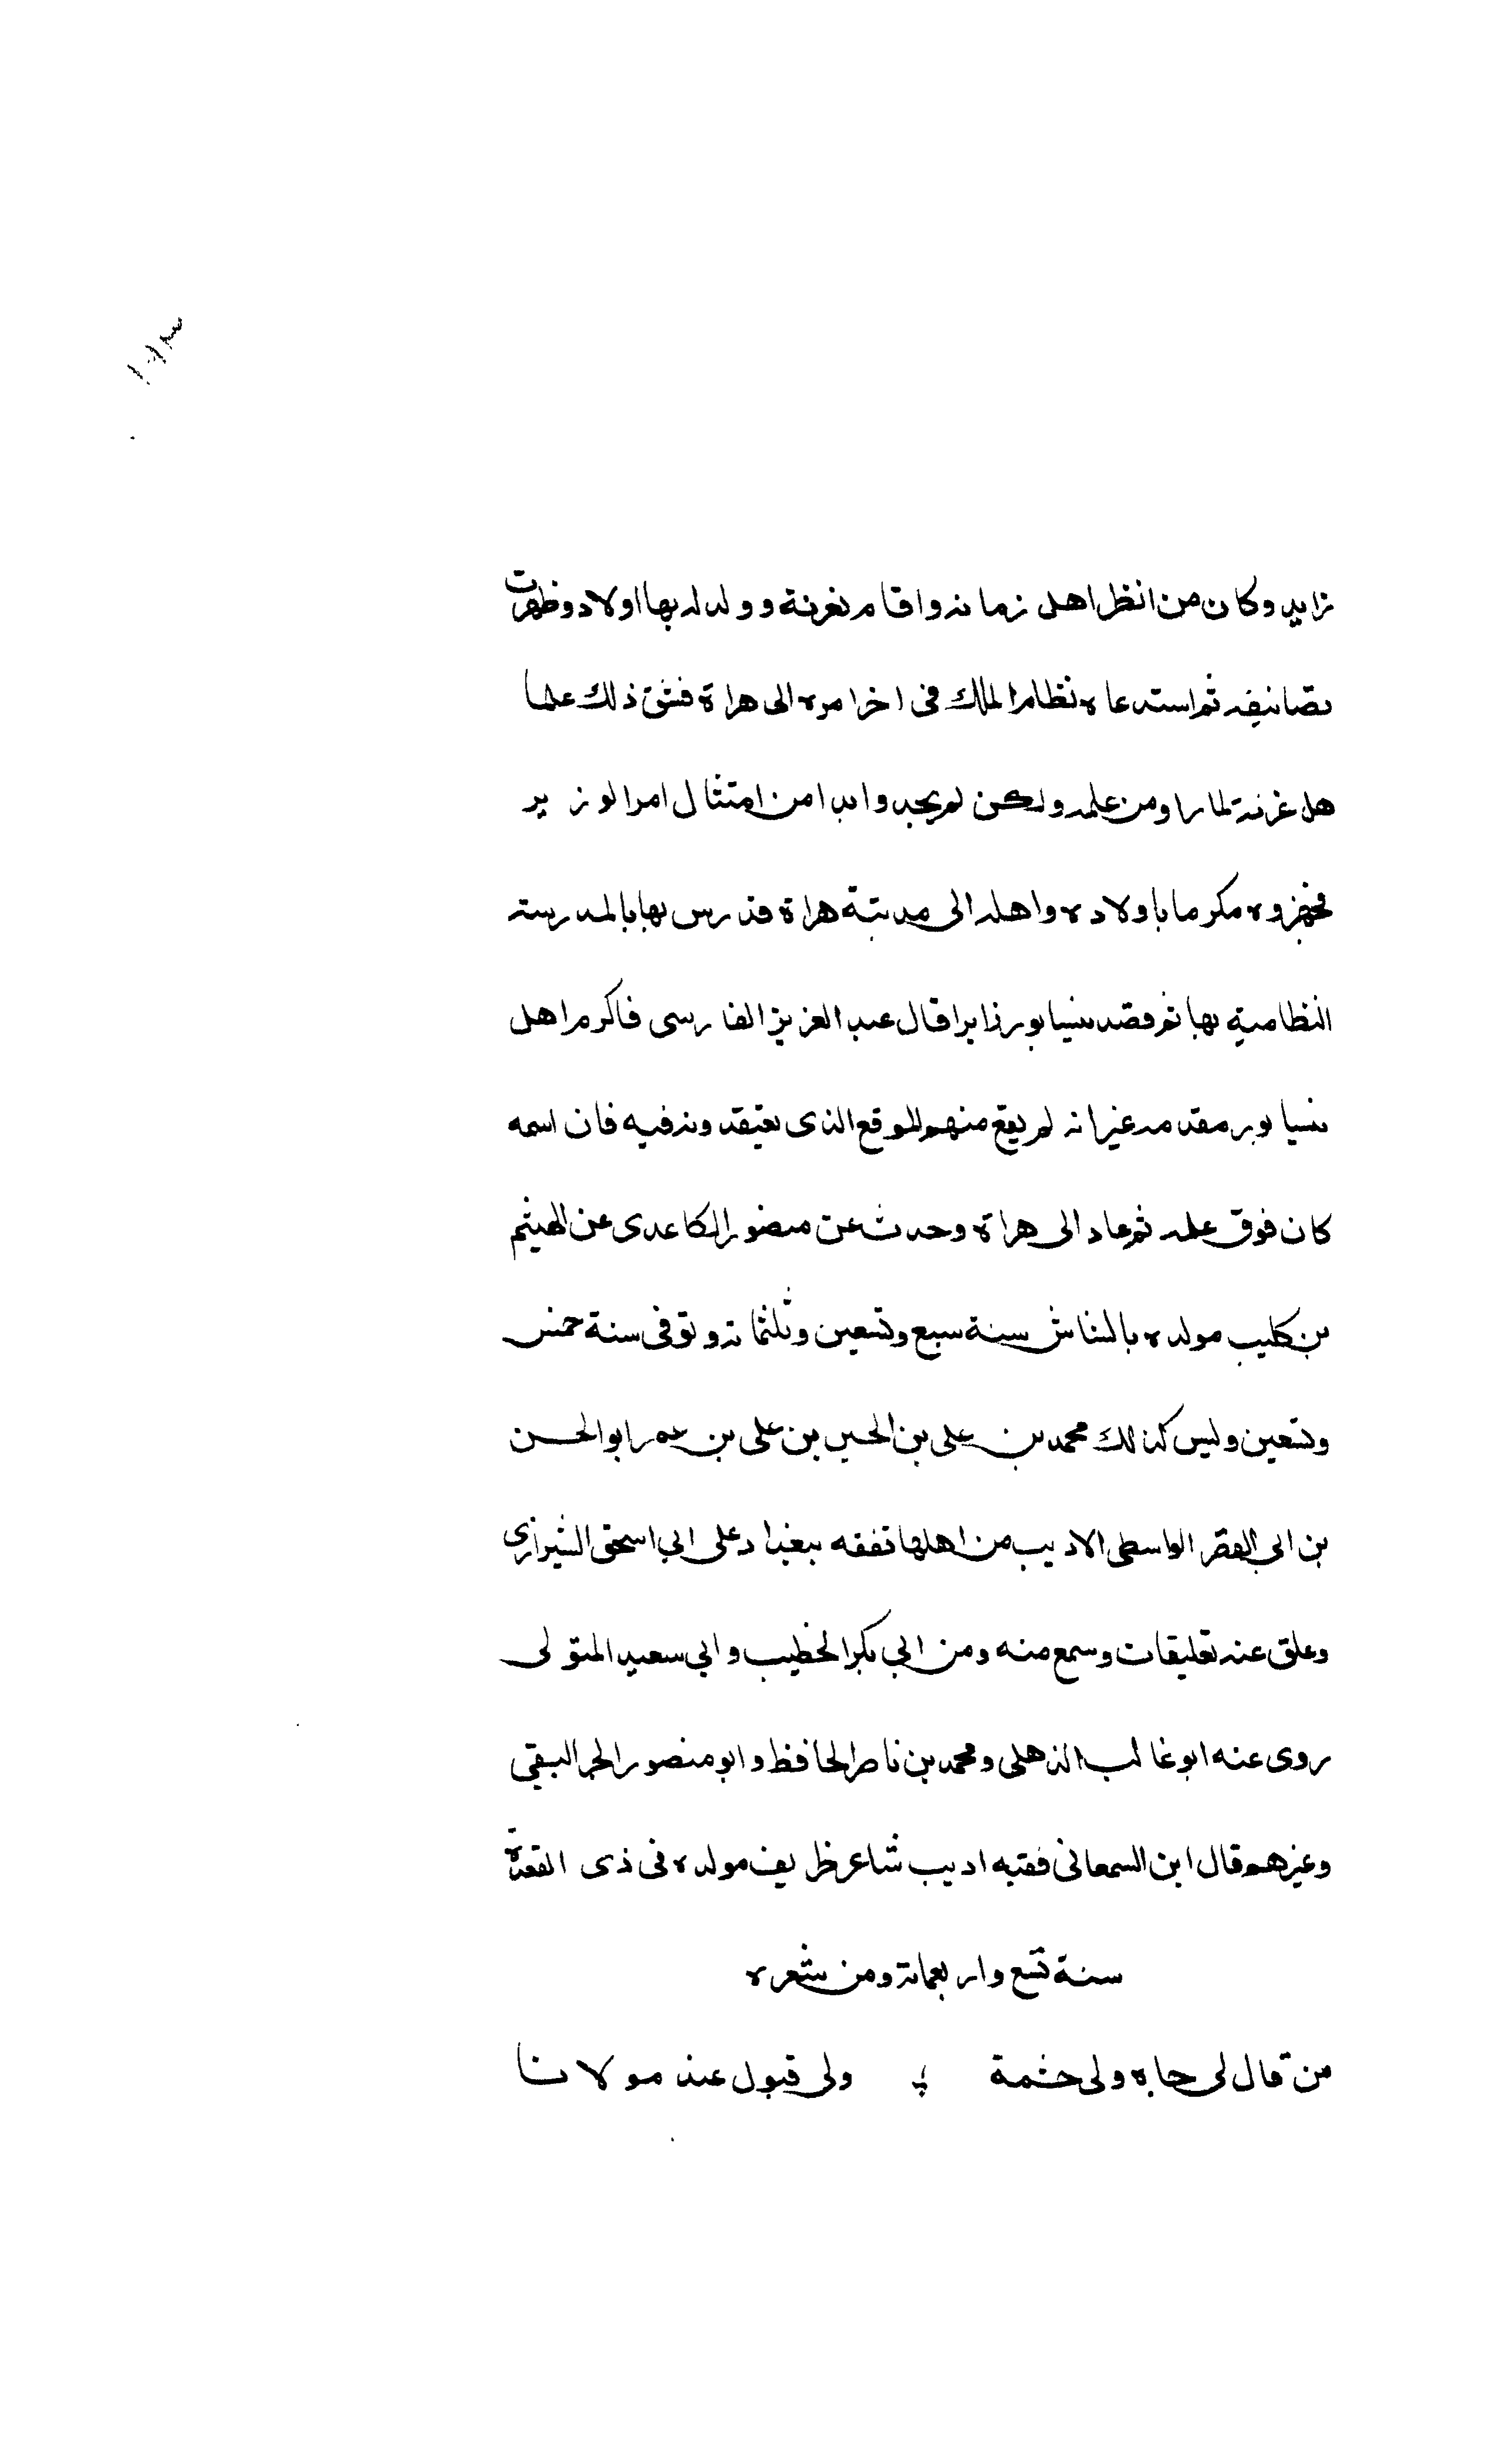 زايد وكان من انظر اهل زمانه واقام بغزنة وولد له بها اولاد وظهرت
تصانيفه ثم استدعاه نظام الملك في اخر امره الى هراة فشق ذلك علىا
هل غزنة لما راو من علمه ولكن لم يجد وابدا من امتثال امر الوزير
فجهزوه مكرما باولاده واهله الى مدينة هراة فدرس بها بالمدرسته
النظامية بها ثم قصد نيسابور زايرا قال عبد العزيز الفارسى فاكرم اهل
نيسابور مقدمه غير انه لم يقع منهم الموقع الذى يعتقدونه فيه فان اسمه
كان فوق علمه ثم عاد الى هراة وحدث عن منصور الكاغدى عن الهيثم
بن كليب مولده بالشاش سنة سبع وتسعين وثلثماته وتوفى سنة خمس
وتسعين وليس كذلك محمد بن على بن الحسين بن على بن عمر ابو الحسن
بن ابي الصقر الواسطى الاديب من اهلها تفقه ببغداد على ابي اسحق الشيرازى
وعلق عنه تعليقات وسمع منه ومن ابي بكر الخطيب وابي سعيد المتولى
روى عنه ابو غالب الذهلى ومحمد بن ناصر الحافظ وابو منصور الجواليقى
وغيرهم قال ابن السمعانى فقيه اديب شاعر ظريف مولده فى ذى القعدة
سنة تسع واربعماتة ومن شعره
من قال لى جاه ولى حشمة ولى قبول عند مولانا